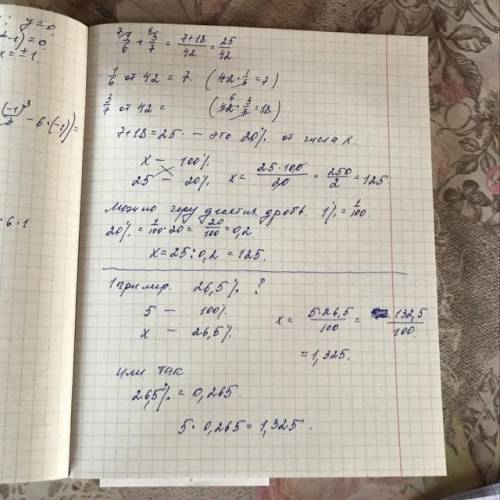 y=0
-1)=0
x=±1
(-1)³ - 6·(-1))=
-6·1
1/6 + 3/7 = 7+18/42 = 25/42
1/6 от 42 = 7. (42·1/6=7)
3/7 от 42 = (42·3/7=18)
7+18=25 - это 20% от числа x.
x - 100%
25 - 20% x = 25·100/20 = 250/2 = 125
Можно через десятич. дробь. 1%=1/100
20% = 1/100·20 = 20/100 = 0,2
x=25:0,2=125.
1 пример. 26,5% ?
5 - 100% x = 5·26,5/100 = 132,5/100
x - 26,5%
= 1,325.
или так
26,5% = 0,265
5·0,265=1,325.